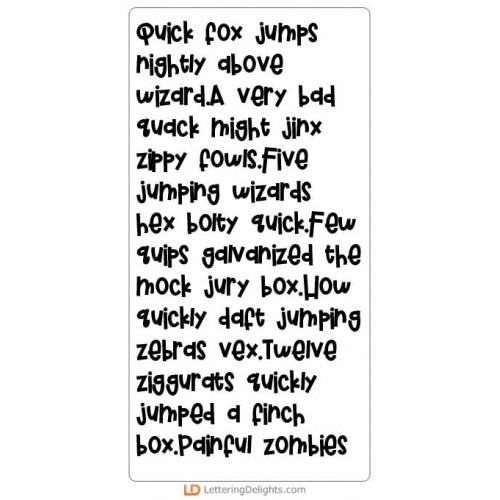 Quick fox jumps
nightly above
wizard.A very bad
quack might jinx
zippy fowls.Five
jumping wizards
hex bolty quick.Few
quips galvanized the
mock jury box.How
quickly daft jumping
zebras vex.Twelve
ziggurats quickly
jumped a finch
box.Painful zombies
LD LetteringDelights.com